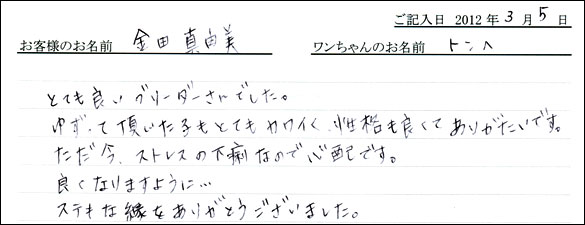 ご記入日 2012 年 3 月 5 日
お客様のお名前 金田 真由美 ワンちゃんのお名前 トンヘ
とても良いブリーダーさんでした。
ゆずって頂いた子もとてもカワイく、性格も良くてありがたいです。
ただ今、ストレスの下痢なので心配です。
良くなりますように…
ステキな縁をありがとうございました。